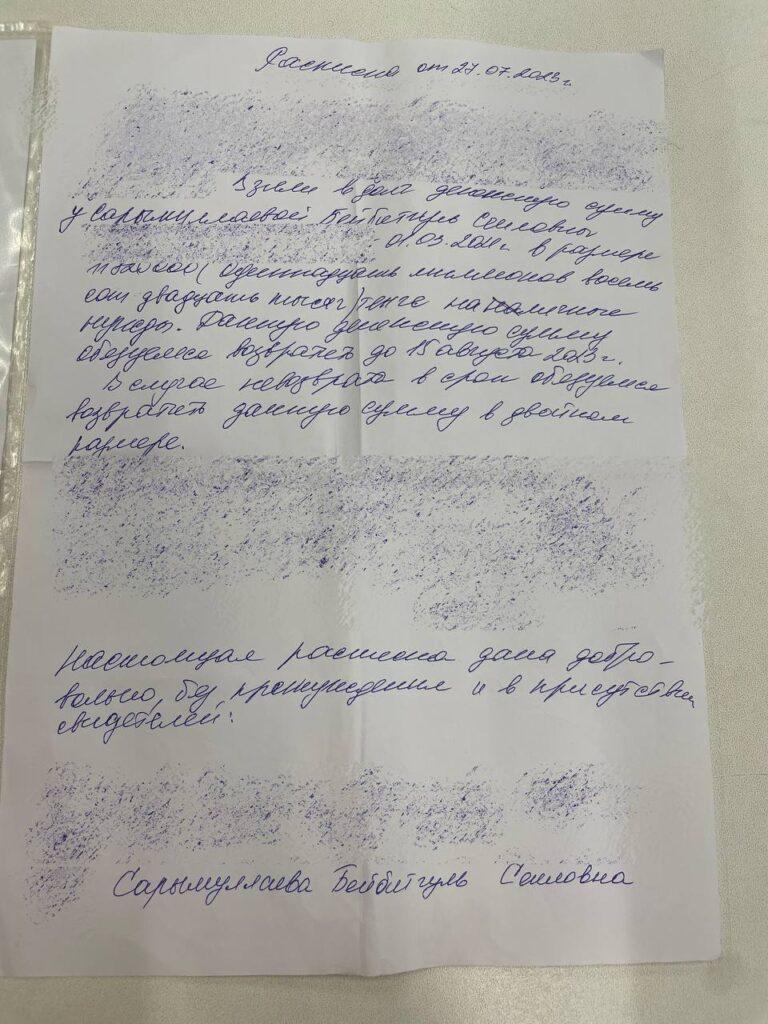 Расписка от 27.07.2023г.
Взяли в долг денежную сумму
у Сарымуллаевой Бейбетгуль Сеиловны
01.03.2021г. в размере
11820000 (одиннадцать миллионов восемь
сот двадцать тысяч) тенге на личные
нужды. Данную денежную сумму
обязуемся возвратить до 15 августа 2023г.
В случае невозврата в срок обязуемся
возвратить данную сумму в двойном
размере.
Настоящая расписка дана добро-
вольно, без принуждения и в присутствии
свидетелей:
Сарымуллаева Бейбитгуль Сеиловна